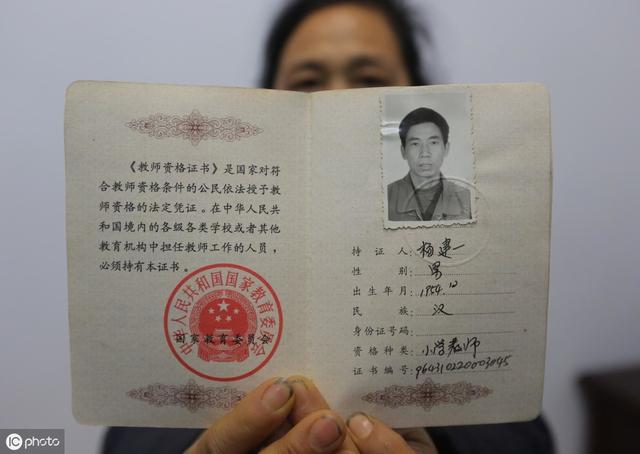 《教师资格证书》是国家对符
合教师资格条件的公民依法授予教
师资格的法定凭证。在中华人民共
和国境内的各级各类学校或者其他
教育机构中担任教师工作的人员，
必须持有本证书。
中华人民共和国国家教育委员会
国家教育委员会
持证人：杨建一
性别：男
出生年月：1954.12
民族：汉
身份证号码：
资格种类：小学教师
证书编号：964310220003045
iC photo